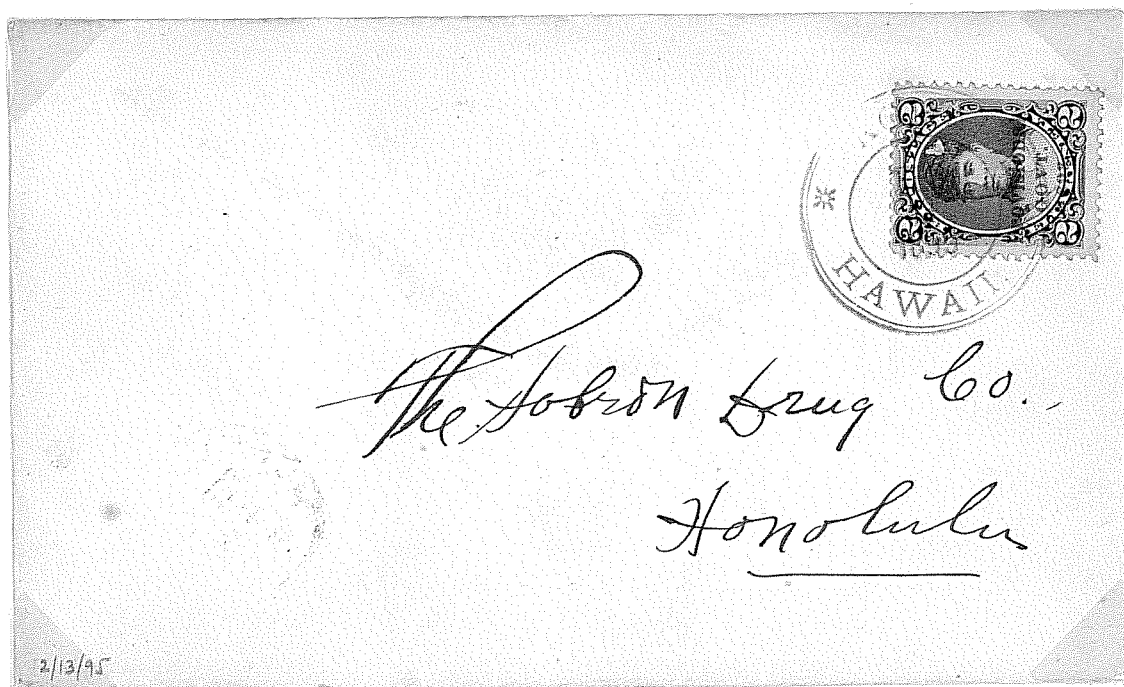 2
2
2
2
GOVT.
HAWAII
The Hobron Drug Co.
Honolulu
2/13/95